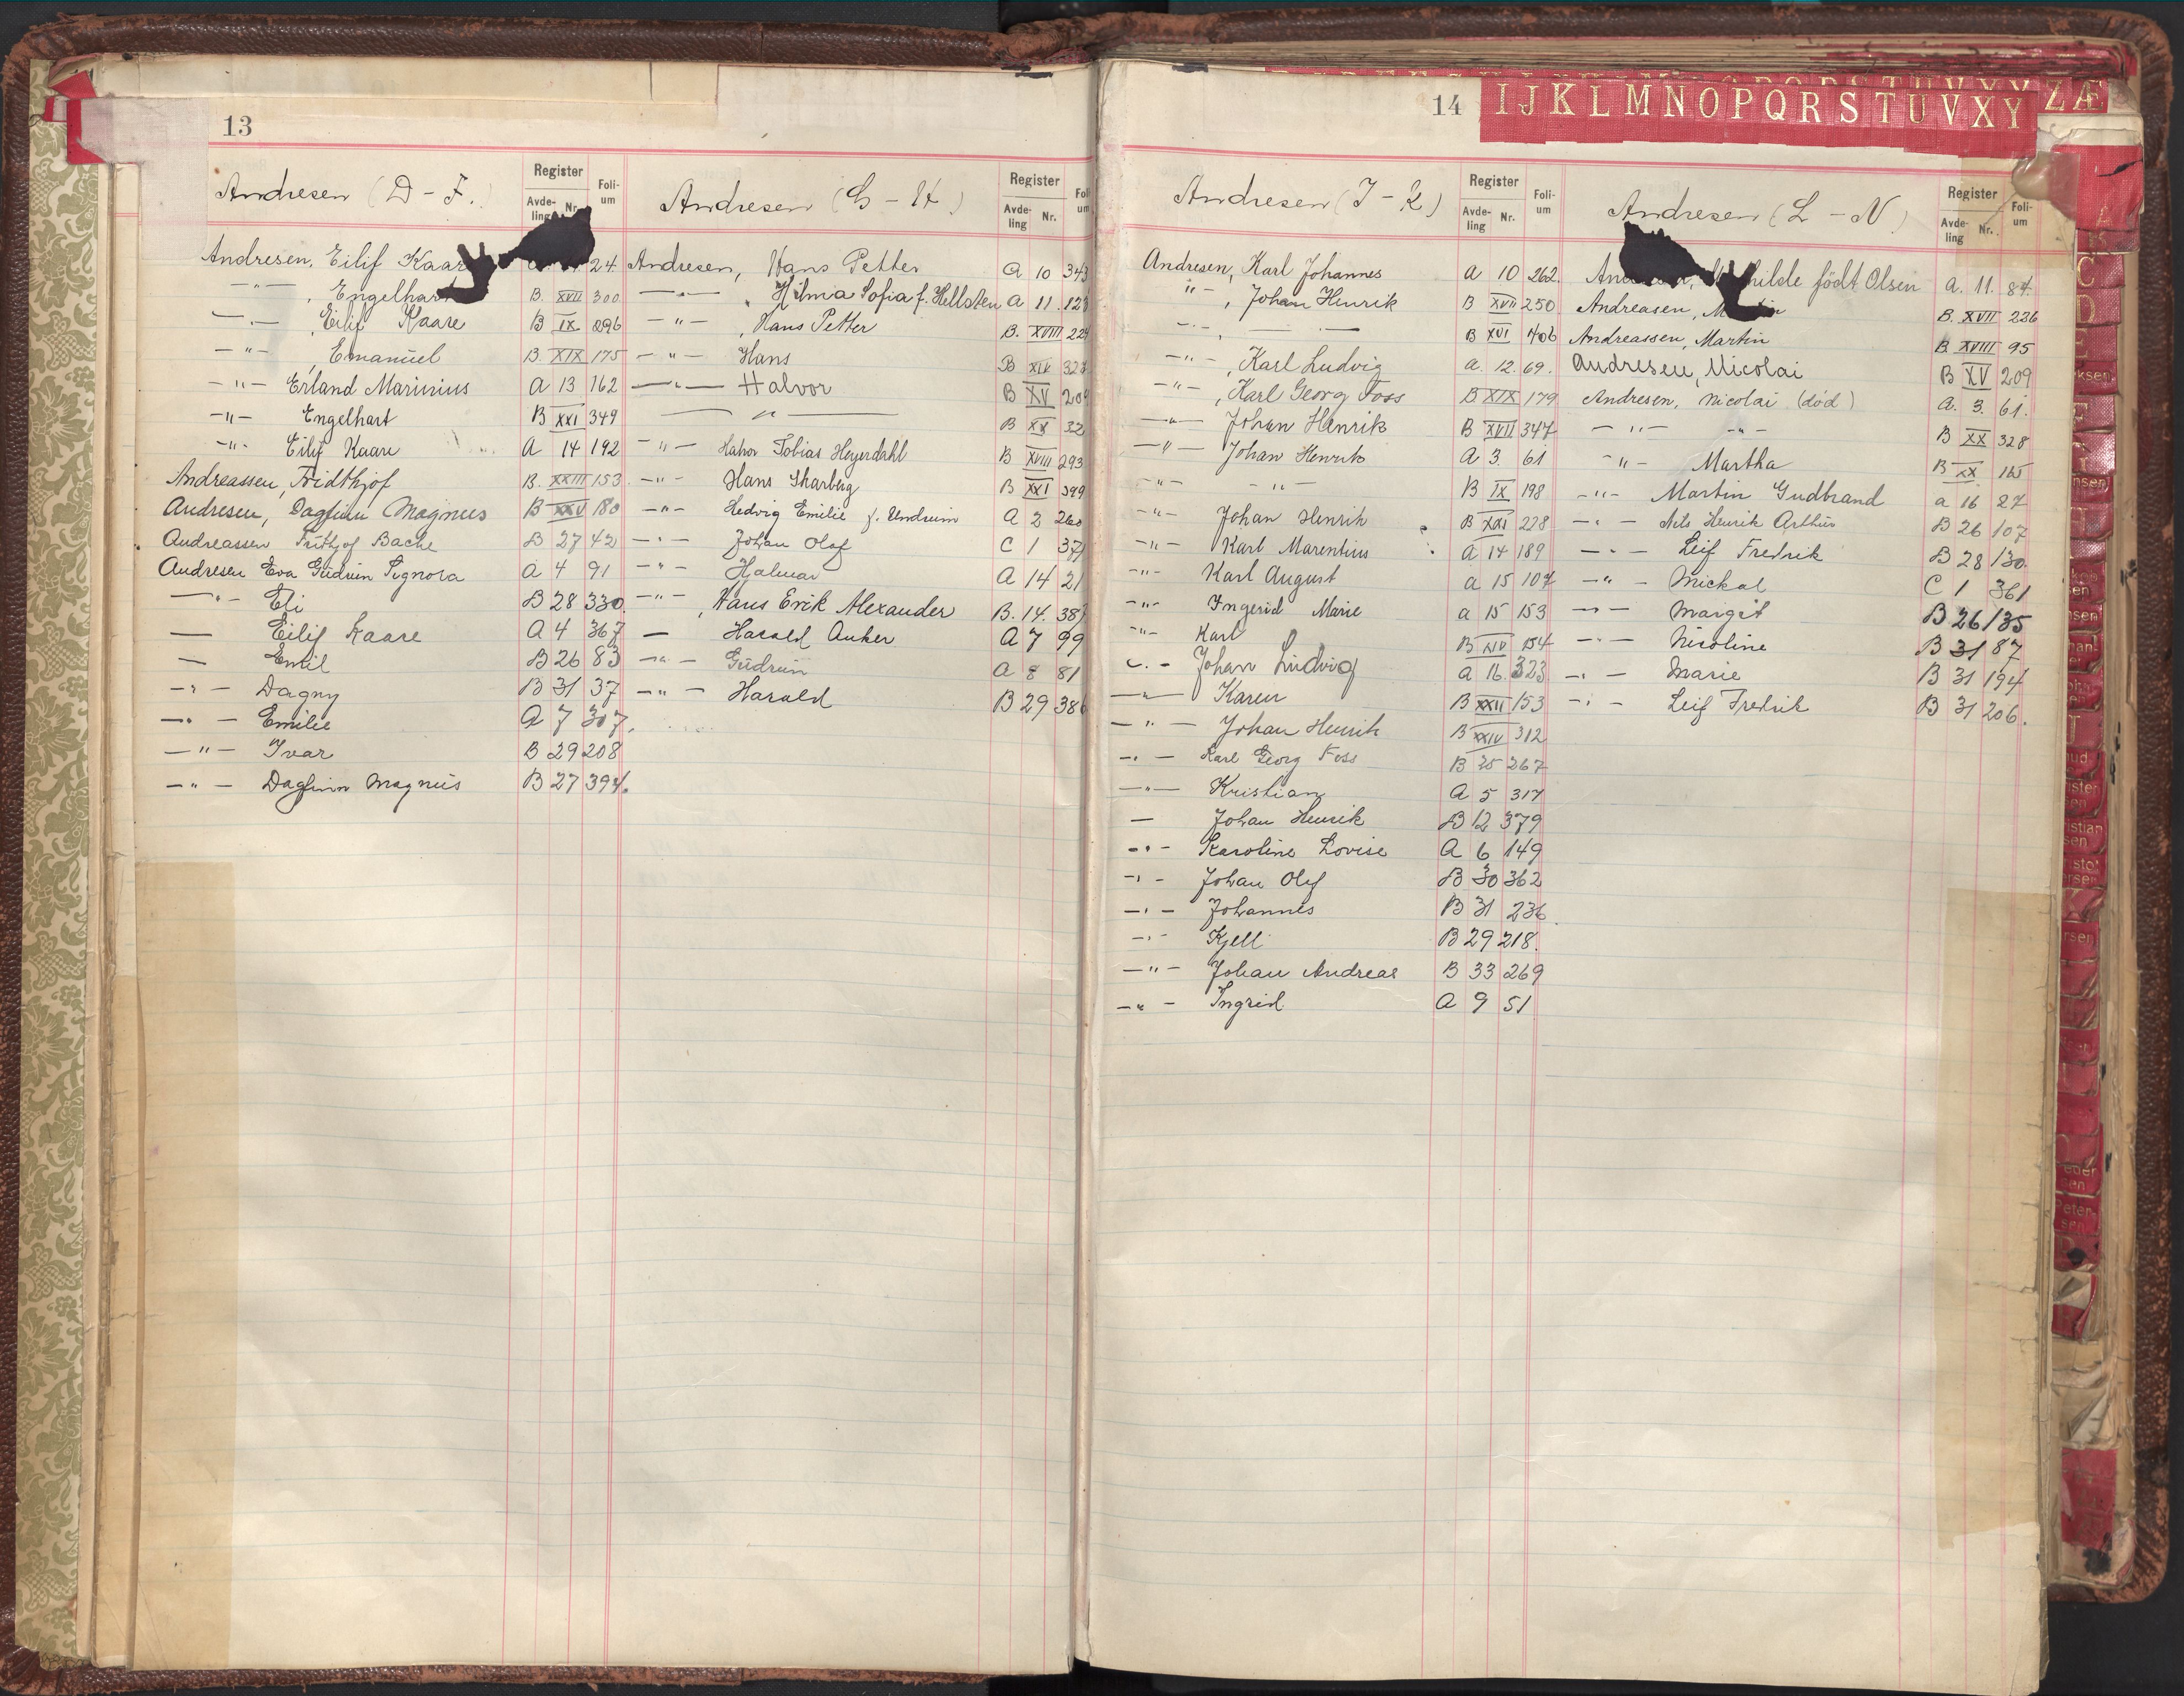 13
Register
Foli-
um
Avde-
ling
Nr.
Andresen (D - F.)
Andresen, Eilif Kaare 24
-"- , Engelhart B. XVII 300
-"- , Eilif Kaare B IX 296
-"- , Emanuel B. XIX 175
-"- Erland Marinius A 13 162
-"- Engelhart B XXI 349
-"- Eilif Kaare A 14 192
Andreassen, Fridthjof B. XXIII 153
Andresen, Dagfinn Magnus B XXV 180
Andreassen Frithjof Bache B 27 42
Andresen Eva Gudrun Signora A 4 91
-"- Eli B 28 330
— Eilif Kaare A 4 367
— Emil B 26 83
-"- Dagny B 31 37
-"- Emilie A 7 307
-"- Ivar B 29 208
-"- Dagfinn Magnus B 27 394.
Register
Foli-
um
Avde-
ling
Nr.
Andresen (G - H)
Andresen, Hans Petter A 10 343
-"- , Hilma Sofia f. Hellsten A 11. 128
-"- , Hans Petter B. XVIII 224
-"- Hans B XIX 328
-"- Halvor B XV 209
-"- B XX 32
-"- Halvor Tobias Heyerdahl B XVIII 293
-"- Hans Skarberg B XXI 399
-"- Hedvig Emilie f. Undrum A 2 260
-"- Johan Olaf C 1 37
-"- Halmar A 14 21
-"- , Hans Erik Alexander B. 14. 38
— Harald Anker A 7 99
-"- Gudrun A 8 81
-"- Harald B 29 386
14
I J K L M N O P Q R S T U V X Y Z Æ
Register
Foli-
um
Avde-
ling
Nr.
Andresen (I - K)
Andresen, Karl Johannes A 10 262.
"- , Johan Henrik B XVII 250
-"- , — — B XVI 406
-"- , Karl Ludvig A. 12. 69.
-"- , Karl Georg Foss B XIX 179
-"- Johan Henrik B XVII 347
-"- Johan Henrik A 3. 61
-"- -"- B IX 198
-"- Johan Henrik B XXI 228
-"- Karl Marentius A 14 189
-"- Karl August A 15 107
-"- Ingerid Marie A 15 153
-"- Karl B XIV 154
-"- Johan Ludvig A 16. 323
-"- Karen B XXII 153
-"- Johan Henrik B XXIV 312
-"- Karl Georg Foss B 25 267
-"- Kristian A 5 317
— Johan Henrik B 12 379
-"- Karoline Lovise A 6 149
-"- Johan Olaf B 30 362
-"- Johannes B 31 236
-"- Kjell B 29 218.
-"- Johan Andreas B 33 269
-"- Ingrid A 9 51
Register
Foli-
um
Avde-
ling
Nr.
Andresen (L - N)
født Olsen A. 11. 84.
Andreasen, B. XVII 226
Andreassen, Martin B. XVIII 95
Andresen, Nicolai B XV 209
Andresen, Nicolai (død) A. 3. 61.
-"- -"- B XX 328
-"- Martha B XX 165
-"- Martin Gudbrand A 16 27
-"- Nils Henrik Arthur B 26 107
-"- Leif Fredrik B 28 130
-"- Mickal C 1 361
-"- Margit B 26 135
-"- Nicoline B 31 87
-"- Marie B 31 194
-"- Leif Fredrik B 31 206.